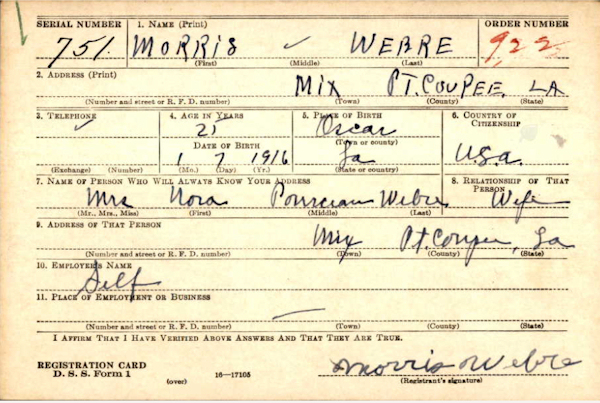 SERIAL NUMBER 1. NAME (Print) ORDER NUMBER
751 MORRIS ✓ WEBRE 922
(First) (Middle) (Last)
2. ADDRESS (Print)
MIX PT. COUPEE, LA
(Number and street or R. F. D. number) (Town) (County) (State)
3. TELEPHONE 4. AGE IN YEARS 5. PLACE OF BIRTH 6. COUNTRY OF CITIZENSHIP
✓ 25 Oscar
DATE OF BIRTH (Town or county)
1 7 1916 La USA.
(Exchange) (Number) (Mo.) (Day) (Yr.) (State or country)
7. NAME OF PERSON WHO WILL ALWAYS KNOW YOUR ADDRESS 8. RELATIONSHIP OF THAT PERSON
Mrs Nora Webre Wife
(Mr., Mrs., Miss) (First) (Middle) (Last)
9. ADDRESS OF THAT PERSON
Mix Pt. Coupee, La
(Number and street or R. F. D. number) (Town) (County) (State)
10. EMPLOYER'S NAME
Self
11. PLACE OF EMPLOYMENT OR BUSINESS
(Number and street or R. F. D. number) (Town) (County) (State)
I AFFIRM THAT I HAVE VERIFIED ABOVE ANSWERS AND THAT THEY ARE TRUE.
REGISTRATION CARD
D. S. S. Form 1 (over) 16—17105 Morris Webre
(Registrant's signature)